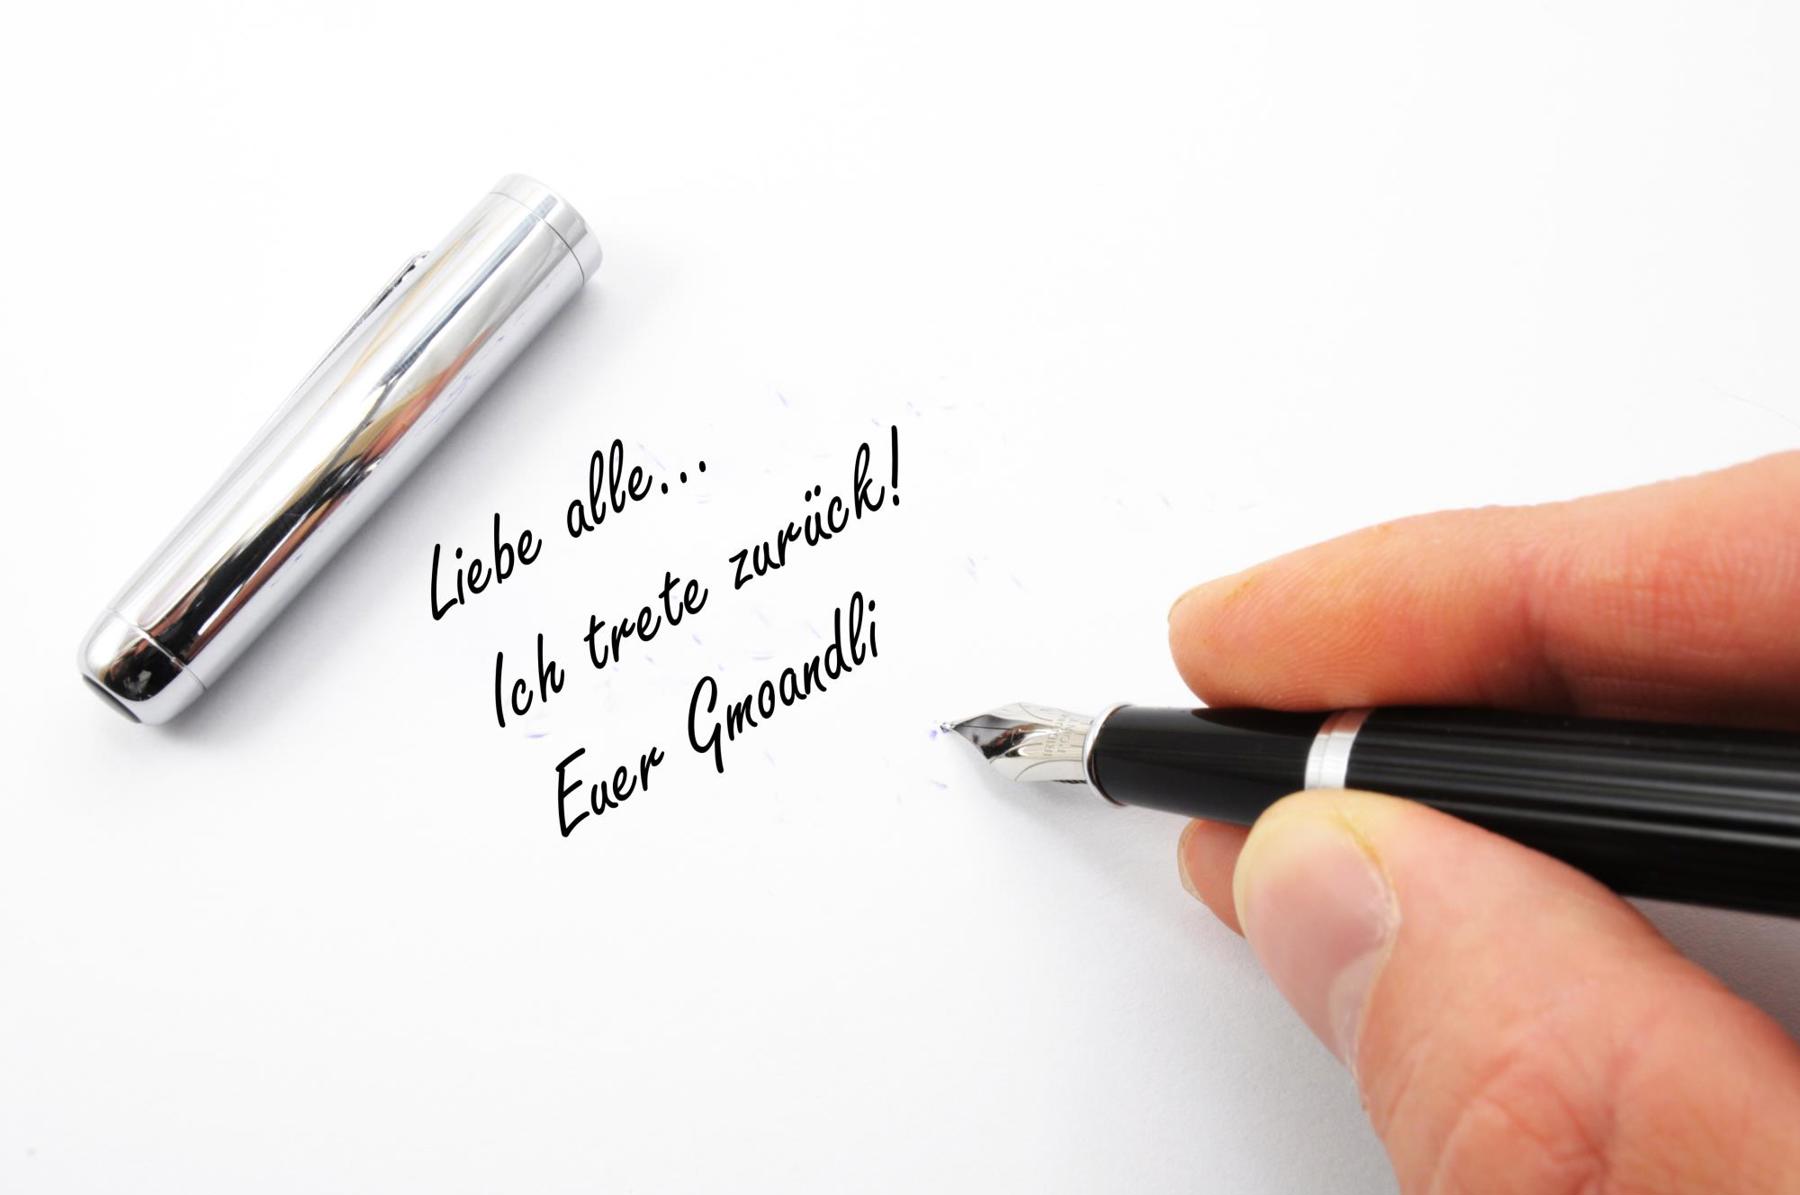 Liebe alle...
Ich trete zurück!
Euer Gmoandli